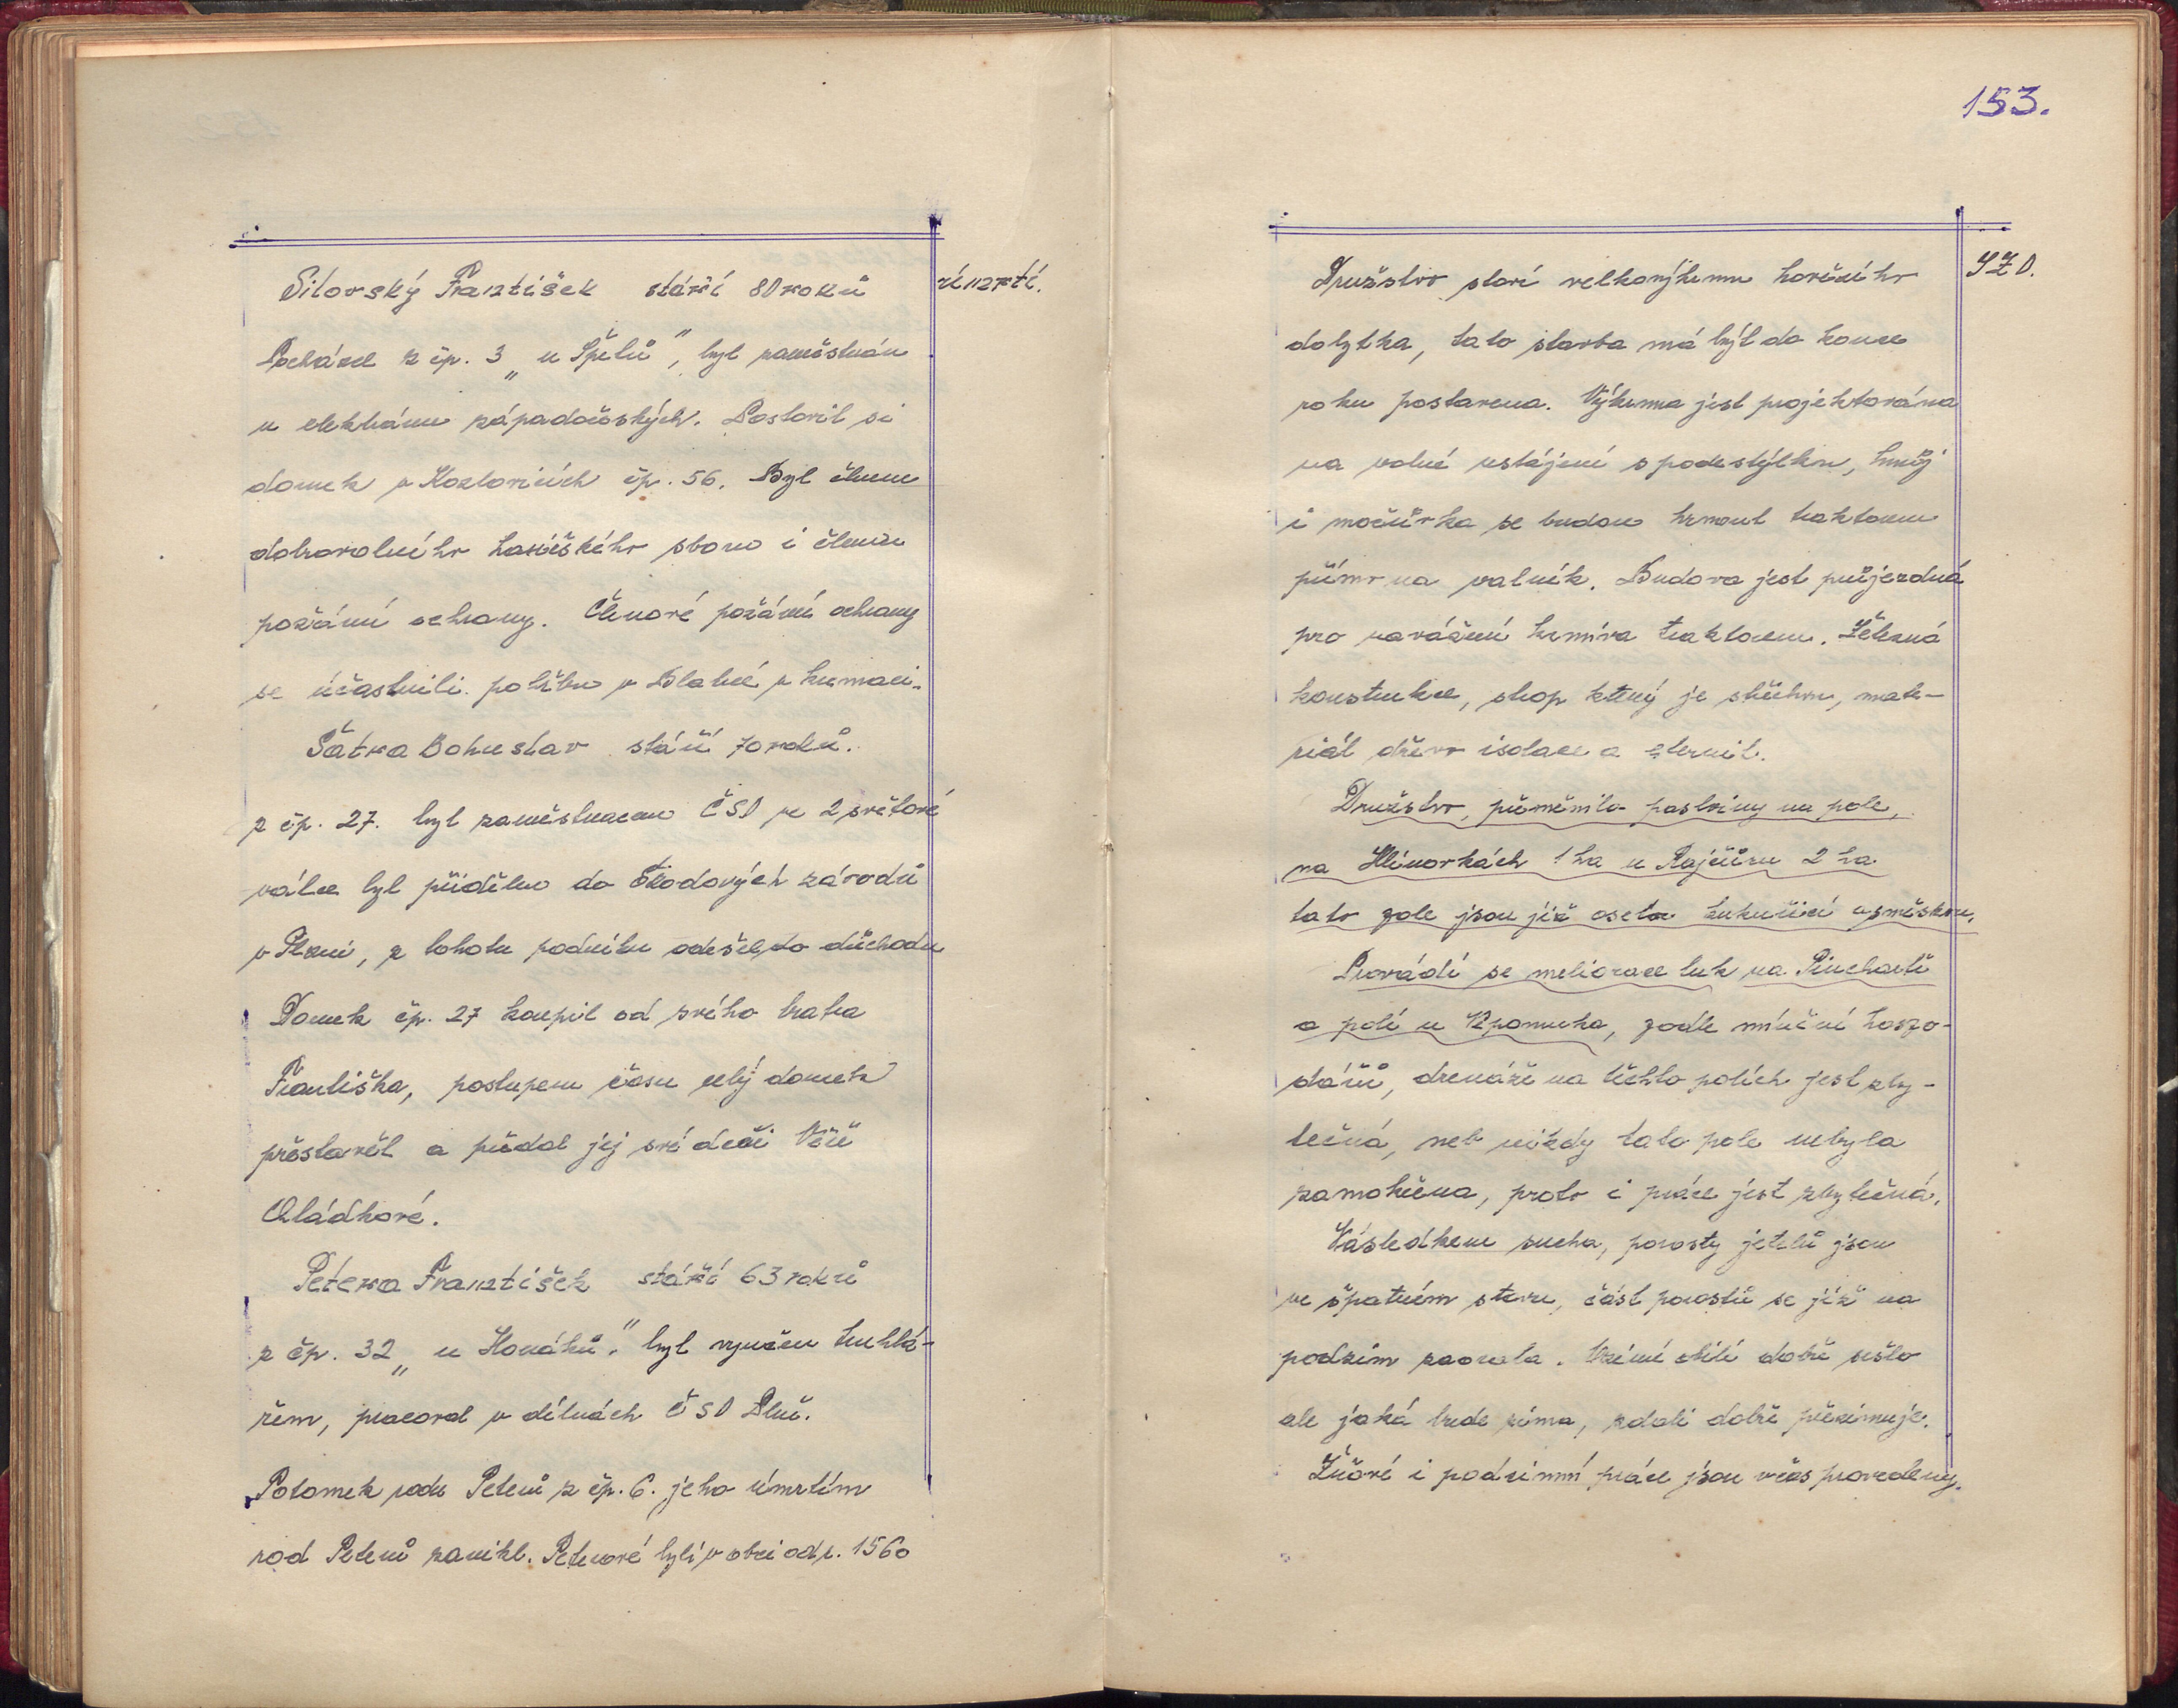 Sitorský František stáří 80 roků
úmrtí.
Pocházel z čp. 3 „u Špělů", byl zaměstnán
u elektráren západočeských. Postavil si
domek v Kozlovicích čp. 56. Byl členem
dobrovolného hasičského sboru i členem
požární ochrany. Členové požární ochrany
se účastnili pohřbu v Blatné v kremaci.
Šatra Bohuslav stáří 70 roků.
z čp. 27. byl zaměstnancem ČSD ve 2 světové
válce byl přidělen do Škodových závodů
v Plzni, z tohoto podniku odešel do důchodu
Domek čp. 27 koupil od svého bratra
Františka, postupem času celý domek
přestavěl a předal jej své dceři Věře
Chládkové.
Petera František stáří 63 roků
z čp. 32 „u Honáků." byl vyučen truhlá-
řem, pracoval v dílnách ČSD Plzeň.
Potomek rodu Peterů z čp. 6. jeho úmrtím
rod Peterů zanikl. Peterové byli v obci od r. 1560
153.
Družstvo staví velkovýkrmnu hovězího
JZD.
dobytka, tato stavba má být do konce
roku postavena. Výkrmna jest projektována
na volné ustájení s podestýlkou, hnůj
i močůvka se budou hrnout traktorem
přímo na valník. Budova jest průjezdná
pro navážení krmiva traktorem. Železná
konstrukce, strop který je střechou, mate-
riál dřevo isolace a eternit.
Družstvo, přeměnilo pastviny na pole,
na Hlinovkách 1 ha u Rajčůru 2 ha
tato pole jsou již oseta kukuřicí a směskou.
Provádí se meliorace luk na
a polí u, podle mínění hospo-
dářů, drenáže na těchto polích jest zby-
tečná, neb nikdy tato pole nebyla
zamokřena, proto i práce jest zbytečná.
Následkem sucha, porosty jetelů jsou
ve špatném stavu, část porostů se již na
podzim zaorala. Ozimé obilí dobře sešlo
ale jaká bude zima, zdali dobře přezimuje.
Žňové i podzimní práce jsou včas provedeny.